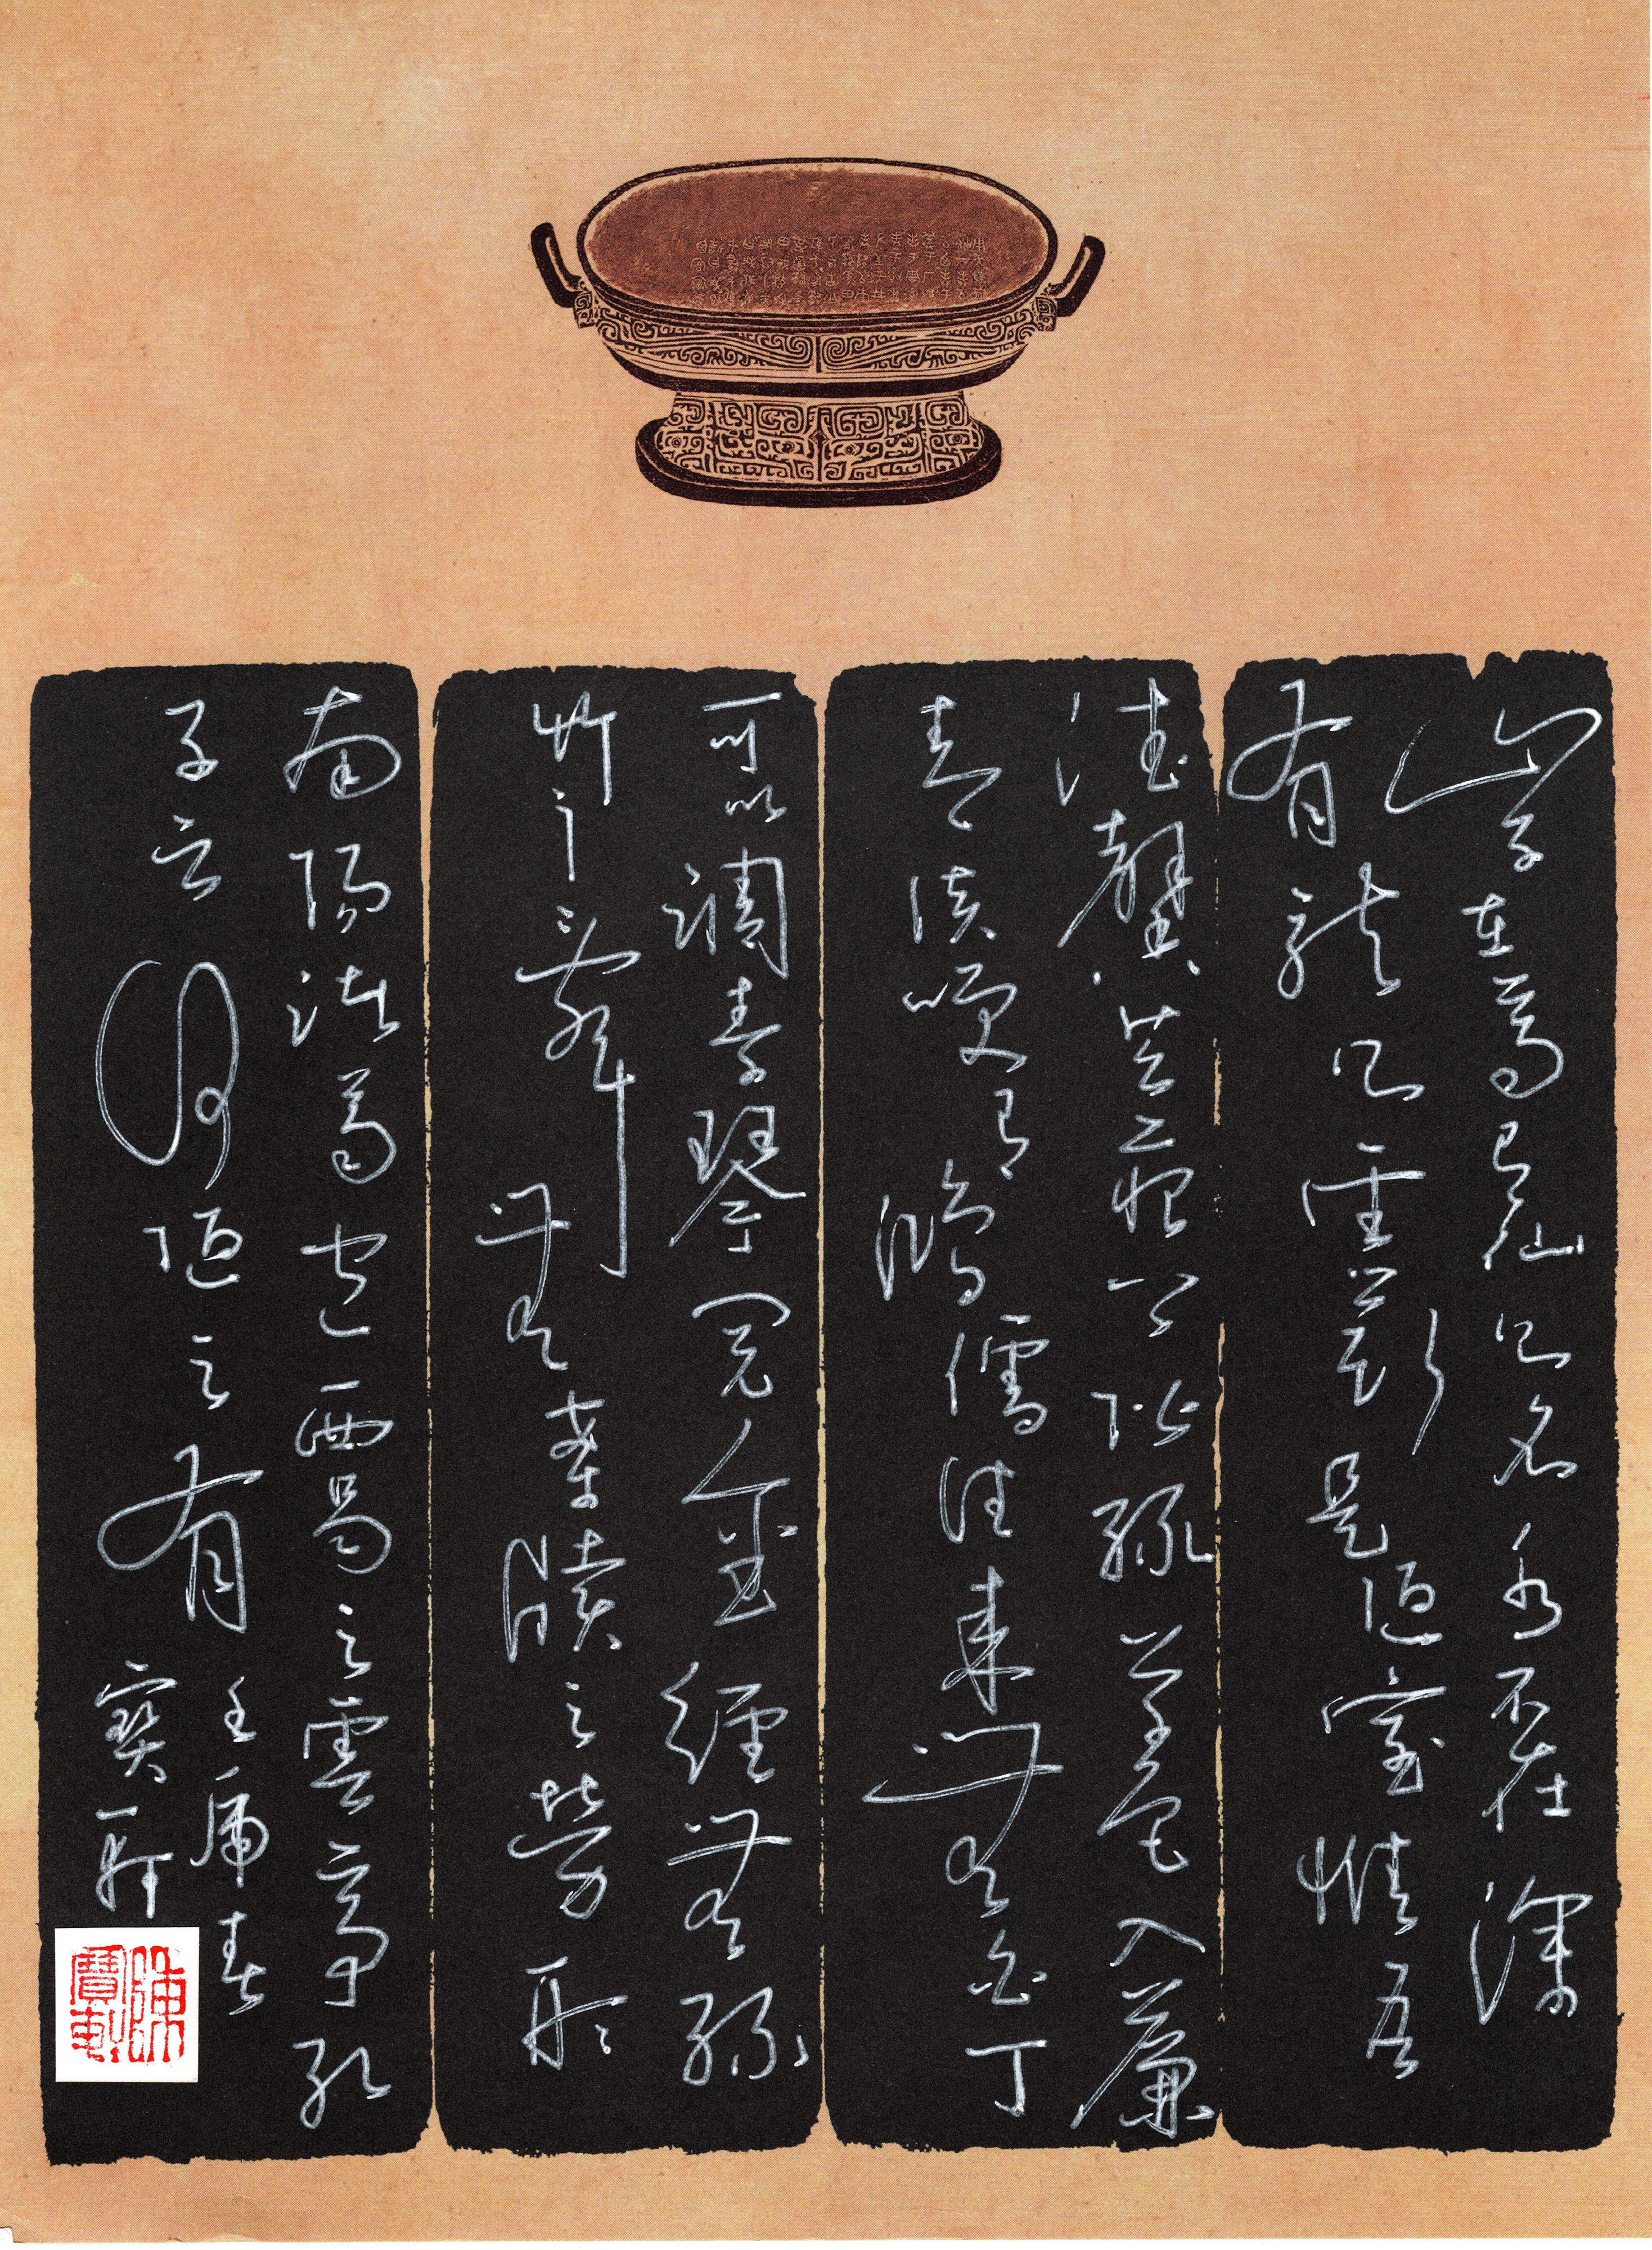 山不在高有仙則名水不在深
有龍則靈斯是陋室惟吾
德馨苔痕上階綠草色入簾
青談笑有鴻儒往來無白丁
可以調素琴閱金經無絲
竹之亂耳無案牘之勞形
南陽諸葛廬西蜀之雲亭孔
子云何陋之有
壬虎春
寶軒
陳寶軒